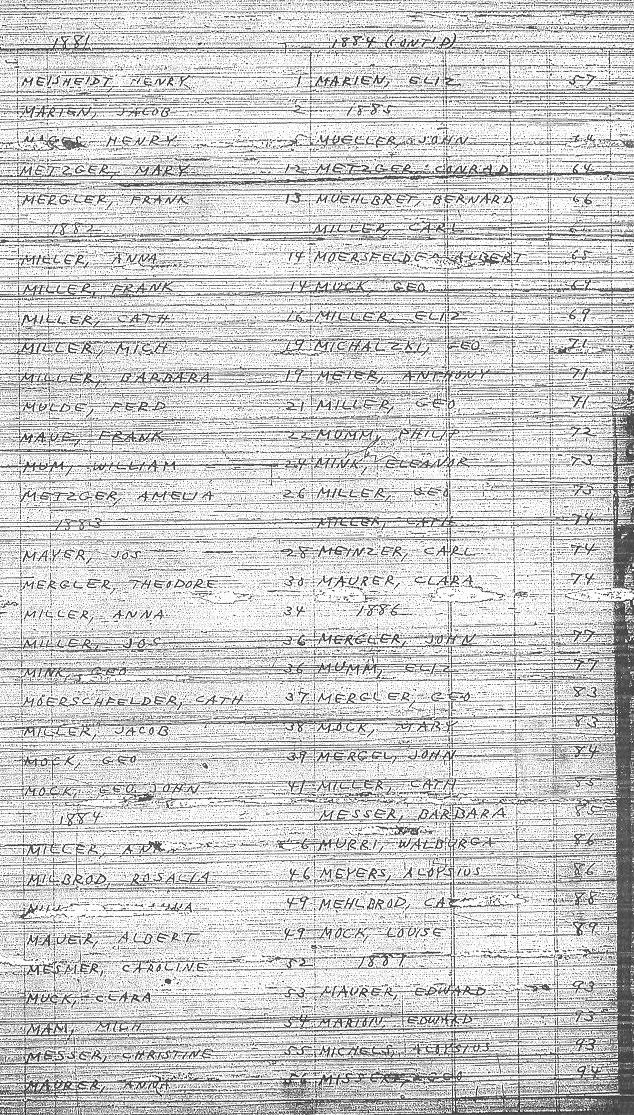 1881
MEISHEIDT, HENRY 1
MARIEN, JACOB 2
HENRY
METZGER, MARY 12
MERGLER, FRANK 13
1882
MILLER, ANNA 14
MILLER, FRANK 14
MILLER, CATH 16
MILLER, MICH 19
MILLER, BARBARA 19
MULDE, FERD 21
MAUE, FRANK 22
MUM, WILLIAM 24
METZGER, AMELIA 26
1883
MAYER, JOS 28
MERGLER, THEODORE 30
MILLER, ANNA 34
MILLER, JOS 36
MINK, GEO 36
MOERSCHFELDER, CATH 37
MILLER, JACOB 38
MOCK, GEO 39
MOCK, GEO JOHN 41
1884
MILLER,
MILBROD, ROSALIA 46
49
MAUER, ALBERT 49
MESMER, CAROLINE 52
MUCK, CLARA 53
MAM, MICH 54
MESSER, CHRISTINE 55
MAURER, ANNA 56
1884 (CONT'D)
MARIEN, ELIZ 57
1885
MUELLER, JOHN
METZGER, CONRAD 64
MUEHLBRET, BERNARD 66
MILLER, CARL
MOERSFELDER, ALBERT 65
MUCK, GEO 69
MILLER, ELIZ 69
MICHALZKI, GEO 71
MEIER, ANTHONY 71
MILLER, GEO 71
MOMM, PHILIP 72
MINK, ELEANOR 73
MILLER, GEO 73
MILLER, CATH 74
MEINZER, CARL 74
MAURER, CLARA 74
1886
MERGLER, JOHN 77
MUMM, ELIZ 77
MERGLER, GEO 83
MOCK, MARY 83
MERGEL, JOHN 84
MILLER, CATH
MESSER, BARBARA
MURRI, WALBURGA 86
MEYERS, ALOYSIUS 86
MEHLBROD, 88
MOCK, LOUISE 89
1887
MAURER, EDWARD 93
MARION, EDWARD 93
MICHELS, ALOYSIUS 93
GEO 94